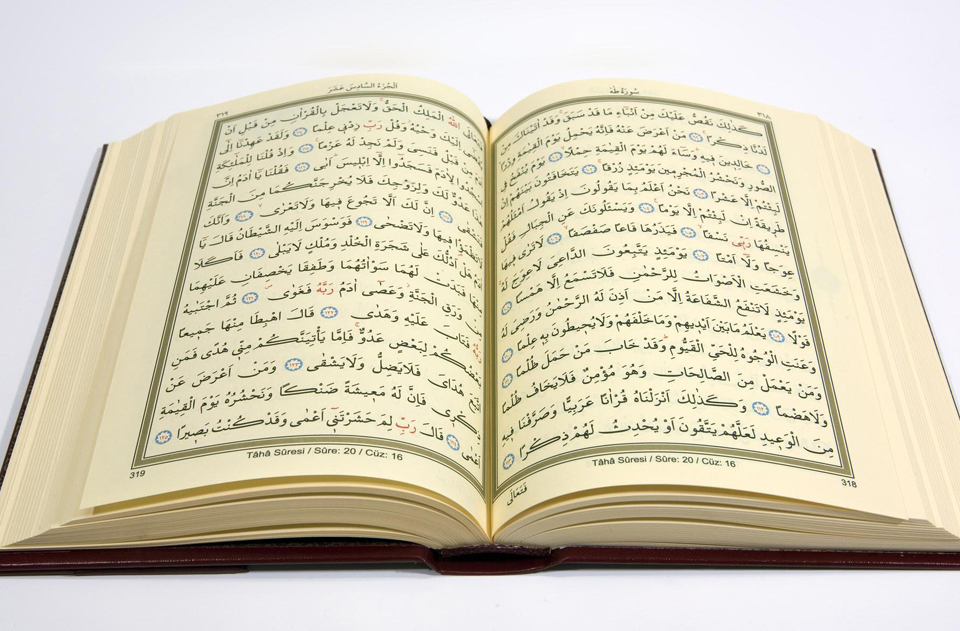 سُورَةُ طٰهٰ
٣١٨
كَذٰلِكَ نَقُصُّ عَلَيْكَ مِنْ اَنْبَٓاءِ مَا قَدْ سَبَقَۚ وَقَدْ اٰتَيْنَاكَ مِنْ
لَدُنَّا ذِكْرًاۚ ﴿٩٩﴾ مَنْ اَعْرَضَ عَنْهُ فَاِنَّهُ يَحْمِلُ يَوْمَ الْقِيٰمَةِ وِزْرًاۙ
﴿١٠٠﴾ خَالِدِينَ فِيهِۜ وَسَٓاءَ لَهُمْ يَوْمَ الْقِيٰمَةِ حِمْلًاۙ ﴿١٠١﴾ يَوْمَ يُنْفَخُ فِي
الصُّورِ وَنَحْشُرُ الْمُجْرِمِينَ يَوْمَئِذٍ زُرْقًاۚ ﴿١٠٢﴾ يَتَخَافَتُونَ بَيْنَهُمْ اِنْ
لَبِثْتُمْ اِلَّا عَشْرًا ﴿١٠٣﴾ نَحْنُ اَعْلَمُ بِمَا يَقُولُونَ اِذْ يَقُولُ اَمْثَلُهُمْ
طَرِيقَةً اِنْ لَبِثْتُمْ اِلَّا يَوْمًا۟ ﴿١٠٤﴾ وَيَسْـَٔلُونَكَ عَنِ الْجِبَالِ فَقُلْ
يَنْسِفُهَا رَبِّي نَسْفًاۙ ﴿١٠٥﴾ فَيَذَرُهَا قَاعًا صَفْصَفًاۙ ﴿١٠٦﴾ لَا تَرٰى فِيهَا
عِوَجًا وَلَٓا اَمْتًاۜ ﴿١٠٧﴾ يَوْمَئِذٍ يَتَّبِعُونَ الدَّاعِيَ لَا عِوَجَ لَهُۚ
وَخَشَعَتِ الْاَصْوَاتُ لِلرَّحْمٰنِ فَلَا تَسْمَعُ اِلَّا هَمْسًا ﴿١٠٨﴾
يَوْمَئِذٍ لَا تَنْفَعُ الشَّفَاعَةُ اِلَّا مَنْ اَذِنَ لَهُ الرَّحْمٰنُ وَرَضِيَ لَهُ
قَوْلًا ﴿١٠٩﴾ يَعْلَمُ مَا بَيْنَ اَيْدِيهِمْ وَمَا خَلْفَهُمْ وَلَا يُحِيطُونَ بِهِ عِلْمًا ﴿١١٠﴾
وَعَنَتِ الْوُجُوهُ لِلْحَيِّ الْقَيُّومِۜ وَقَدْ خَابَ مَنْ حَمَلَ ظُلْمًا ﴿١١١﴾
وَمَنْ يَعْمَلْ مِنَ الصَّالِحَاتِ وَهُوَ مُؤْمِنٌ فَلَا يَخَافُ ظُلْمًا
وَلَا هَضْمًا ﴿١١٢﴾ وَكَذٰلِكَ اَنْزَلْنَاهُ قُرْاٰنًا عَرَبِيًّا وَصَرَّفْنَا فِيهِ
مِنَ الْوَعِيدِ لَعَلَّهُمْ يَتَّقُونَ اَوْ يُحْدِثُ لَهُمْ ذِكْرًا ﴿١١٣﴾
Tâhâ Sûresi / Sûre: 20 / Cüz: 16
318
فَتَعَالَى
اَلْجُزْءُ السَّادِسَ عَشَرَ
٣١٩
فَتَعَالَى اللّٰهُ الْمَلِكُ الْحَقُّۚ وَلَا تَعْجَلْ بِالْقُرْاٰنِ مِنْ قَبْلِ اَنْ
يُقْضٰٓى اِلَيْكَ وَحْيُهُۘ وَقُلْ رَبِّ زِدْنِي عِلْمًا ﴿١١٤﴾ وَلَقَدْ عَهِدْنَٓا اِلٰٓى
اٰدَمَ مِنْ قَبْلُ فَنَسِيَ وَلَمْ نَجِدْ لَهُ عَزْمًا۟ ﴿١١٥﴾ وَاِذْ قُلْنَا لِلْمَلٰٓئِكَةِ
اسْجُدُوا لِاٰدَمَ فَسَجَدُٓوا اِلَّٓا اِبْلِيسَۜ اَبٰى ﴿١١٦﴾ فَقُلْنَا يَٓا اٰدَمُ اِنَّ
هٰذَا عَدُوٌّ لَكَ وَلِزَوْجِكَ فَلَا يُخْرِجَنَّكُمَا مِنَ الْجَنَّةِ
فَتَشْقٰى ﴿١١٧﴾ اِنَّ لَكَ اَلَّا تَجُوعَ فِيهَا وَلَا تَعْرٰىۙ ﴿١١٨﴾ وَاَنَّكَ
لَا تَظْمَؤُ۬ا فِيهَا وَلَا تَضْحٰى ﴿١١٩﴾ فَوَسْوَسَ اِلَيْهِ الشَّيْطَانُ قَالَ يَٓا
اٰدَمُ هَلْ اَدُلُّكَ عَلٰى شَجَرَةِ الْخُلْدِ وَمُلْكٍ لَا يَبْلٰى ﴿١٢٠﴾ فَاَكَلَا
مِنْهَا فَبَدَتْ لَهُمَا سَوْاٰتُهُمَا وَطَفِقَا يَخْصِفَانِ عَلَيْهِمَا
مِنْ وَرَقِ الْجَنَّةِۘ وَعَصٰٓى اٰدَمُ رَبَّهُ فَغَوٰىۖ ﴿١٢١﴾ ثُمَّ اجْتَبٰيهُ
رَبُّهُ فَتَابَ عَلَيْهِ وَهَدٰى ﴿١٢٢﴾ قَالَ اهْبِطَا مِنْهَا جَمِيعًا
بَعْضُكُمْ لِبَعْضٍ عَدُوٌّۚ فَاِمَّا يَأْتِيَنَّكُمْ مِنِّي هُدًى فَمَنِ
اتَّبَعَ هُدَايَ فَلَا يَضِلُّ وَلَا يَشْقٰى ﴿١٢٣﴾ وَمَنْ اَعْرَضَ عَنْ
ذِكْرِي فَاِنَّ لَهُ مَعِيشَةً ضَنْكًا وَنَحْشُرُهُ يَوْمَ الْقِيٰمَةِ
اَعْمٰى ﴿١٢٤﴾ قَالَ رَبِّ لِمَ حَشَرْتَنِٓي اَعْمٰى وَقَدْ كُنْتُ بَصِيرًا ﴿١٢٥﴾
Tâhâ Sûresi / Sûre: 20 / Cüz: 16
319